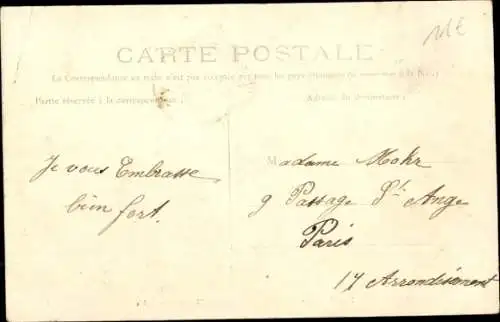 CARTE POSTALE
La Correspondance au recto n'est pas acceptée par tous les pays étrangers
Partie réservée à la correspondance
Adresse du destinataire
Je vous Embrasse
bien fort.
Madame Mohr
9 Passage St. Ange
Paris
17 Arrondisement